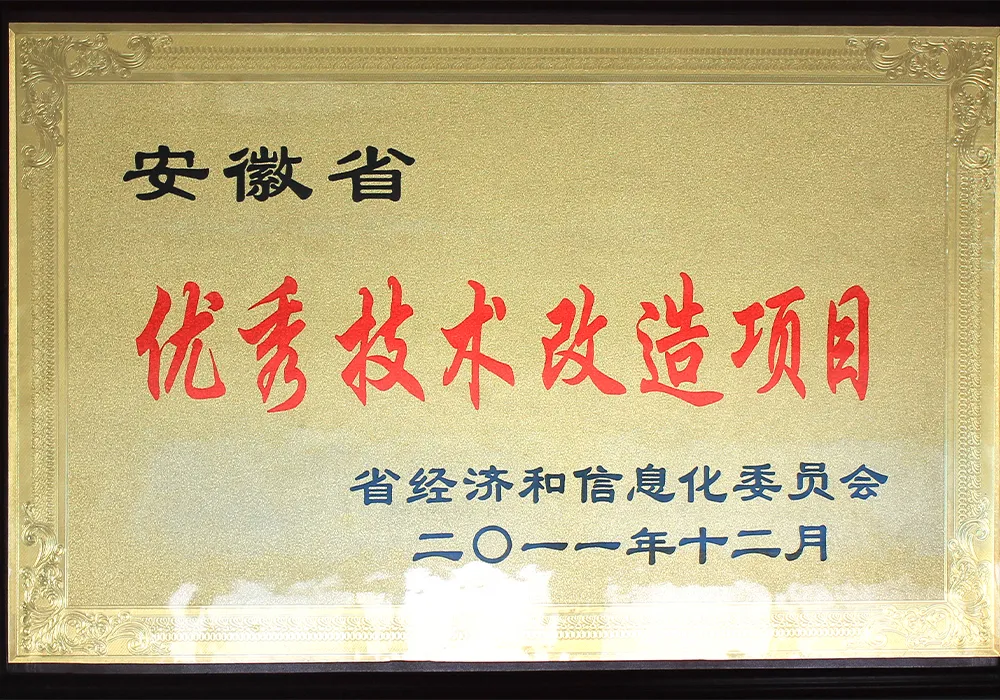 安徽省
优秀技术改造项目
省经济和信息化委员会
二〇一一年十二月